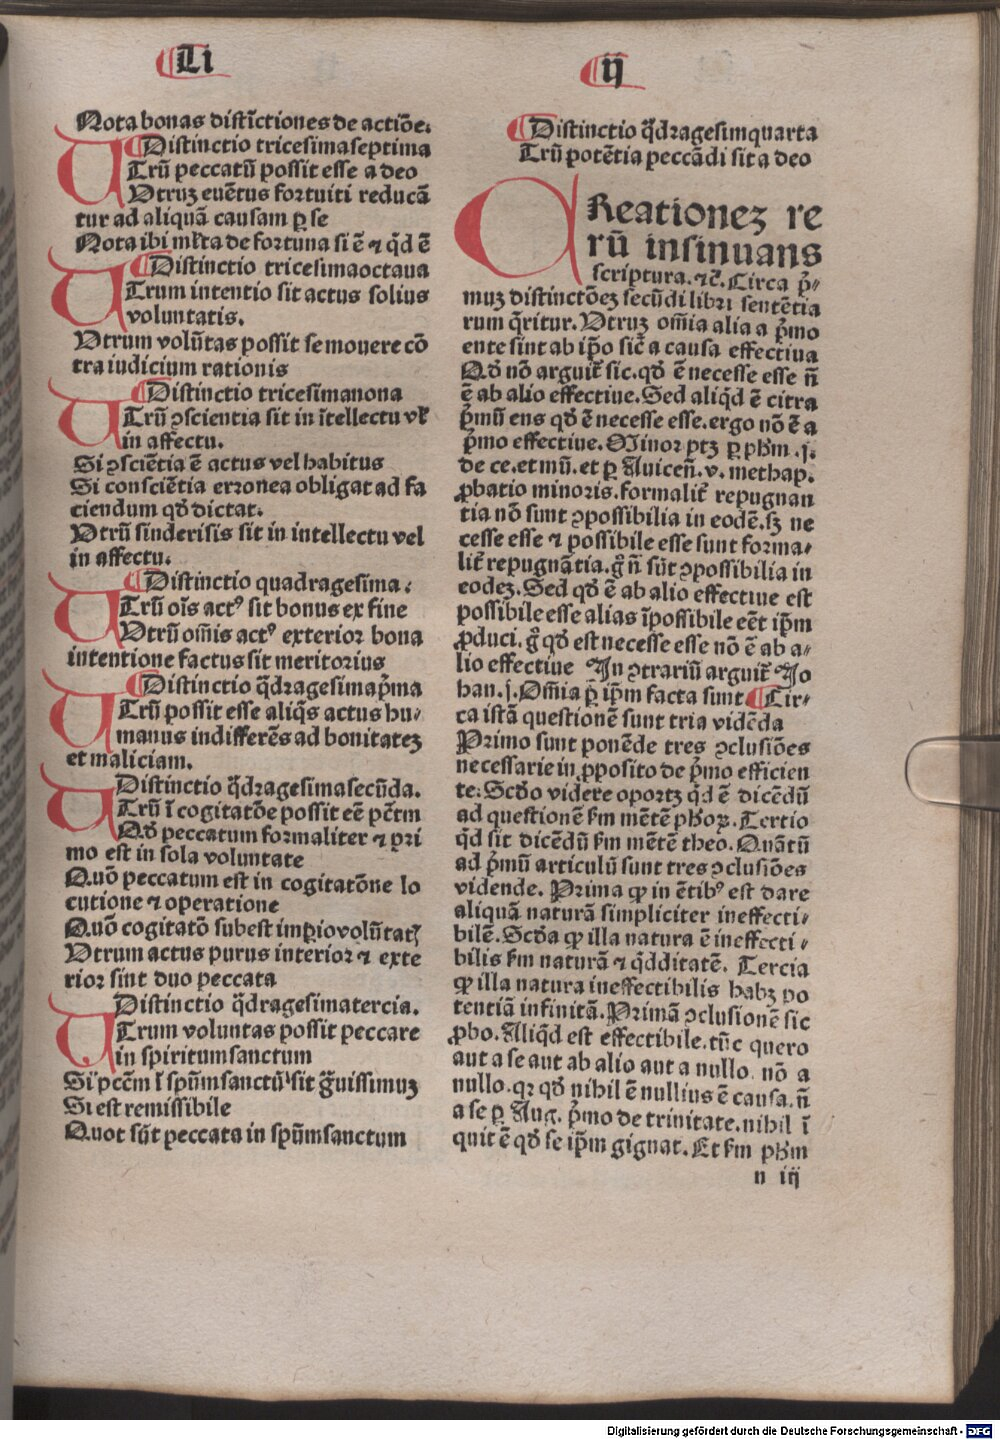 Li
ij
Nota bonas distĩctiones de actiõe.
Distinctio tricesimaseptima
Utrũ peccatũ possit esse a deo
Vtruʒ euẽtus fortuiti reducã
tur ad aliquã causam ꝑ se
Nota ibi ml̃ta de fortuna si ẽ ⁊ q̃d ẽ
Distinctio tricesimaoctaua
UTrum intentio sit actus solius
voluntatis.
Vtrum volũtas possit se mouere cõ
tra iudicium rationis
Distinctio tricesimanona
UTrũ ꝯscientia sit in ĩtellectu vl̃
in affectu.
Si ꝯsciẽtia ẽ actus vel habitus
Si consciẽtia erronea obligat ad fa
ciendum qđ dictat.
Vtrũ sinderisis sit in intellectu vel
in affectu.
Distinctio quadragesima.
UTrũ oĩs actꝰ sit bonus ex fine
Vtrũ om̃is actꝰ exterior bona
intentione factus sit meritorius
Distinctio q̃dragesimap̃ma
UTrũ possit esse aliq̃s actus hu-
manus indifferẽs ad bonitateʒ
et maliciam.
Distinctio q̃dragesimasecũda.
UTrũ ĩ cogitatõe possit eẽ pc̃tm
Qđ peccatum formaliter ⁊ pri
mo est in sola voluntate
Quõ peccatum est in cogitatõne lo
cutione ⁊ operatione
Quõ cogitatõ subest imꝑio volũtatꝭ
Vtrum actus purus interior ⁊ exte
rior sint duo peccata
Distinctio q̃dragesimatercia.
UTrum voluntas possit peccare
in spiritum sanctum
Si pccm̃ ĩ spũm sanctũ sit g̃uissimuʒ
Si est remissibile
Quot sũt peccata in spũm sanctum
Distinctio q̃dragesimquarta
Trũ potẽtia peccãdi sit a deo
CReationeʒ re
rũ insinuans
scriptura. ⁊c̃. Circa p̃-
muʒ distinctõeʒ secũdi libri sentẽtia
rum q̃ritur. Vtruʒ om̃ia alia a p̃mo
ente sint ab ip̃o sic̃ a causa effectiua
Qđ nõ arguit̃ sic. qđ ẽ necesse esse ñ
ẽ ab alio effectiue. Sed aliq̃d ẽ citra
p̃mũ ens qđ ẽ necesse esse. ergo nõ ẽ a
p̃mo effectiue. Minor ptʒ ꝑ ph̃m .j.
de ce. et mũ. et ꝑ Auiceñ. v. methap.
ꝓbatio minoris. formalit̃ repugnan
tia nõ sunt ꝯpossibilia in eodẽ. sʒ ne
cesse esse ⁊ possibile esse sunt forma-
lit̃ repugnãtia. g̃ ñ sũt ꝯpossibilia in
eodeʒ. Sed qđ ẽ ab alio effectiue est
possibile esse alias ĩpossibile eẽt ip̃m
ꝓduci. g̃ qđ est necesse esse nõ ẽ ab a-
lio effectiue In ꝯtrariũ arguit̃ Jo
han. j. Om̃ia ꝑ ip̃m facta sunt Cir-
ca istã questionẽ sunt tria vidẽda
Primo sunt ponẽde tres ꝯclusiões
necessarie in ꝓposito de p̃mo efficien
te. Scđo videre oportʒ q̃d ẽ dicẽdũ
ad questionẽ ẜm mẽtẽ ph̃oꝝ. Tertio
q̃d sit dicẽdũ ẜm mẽtẽ theo. Quãtũ
ad p̃mũ articulũ sunt tres ꝯclusiões
vidende. Prima ꝙ in ẽtibꝰ est dare
aliquã naturã simpliciter ineffecti-
bilẽ. Scđa ꝙ illa natura ẽ ineffecti-
bilis ẜm naturã ⁊ q̃dditatẽ. Tercia
ꝙ illa natura ineffectibilis habʒ po
tentiã infinitã. Primã ꝯclusionẽ sic
ꝓbo. Aliq̃d est effectibile. tũc quero
aut a se aut ab alio aut a nullo. nõ a
nullo. qꝛ qđ nihil ẽ nullius ẽ causa. ñ
a se ꝑ Aug. p̃mo de trinitate. nihil ĩ
quit ẽ qđ se ip̃m gignat. Et ẜm ph̃m
n iij
Digitalisierung gefördert durch die Deutsche Forschungsgemeinschaft - DFG